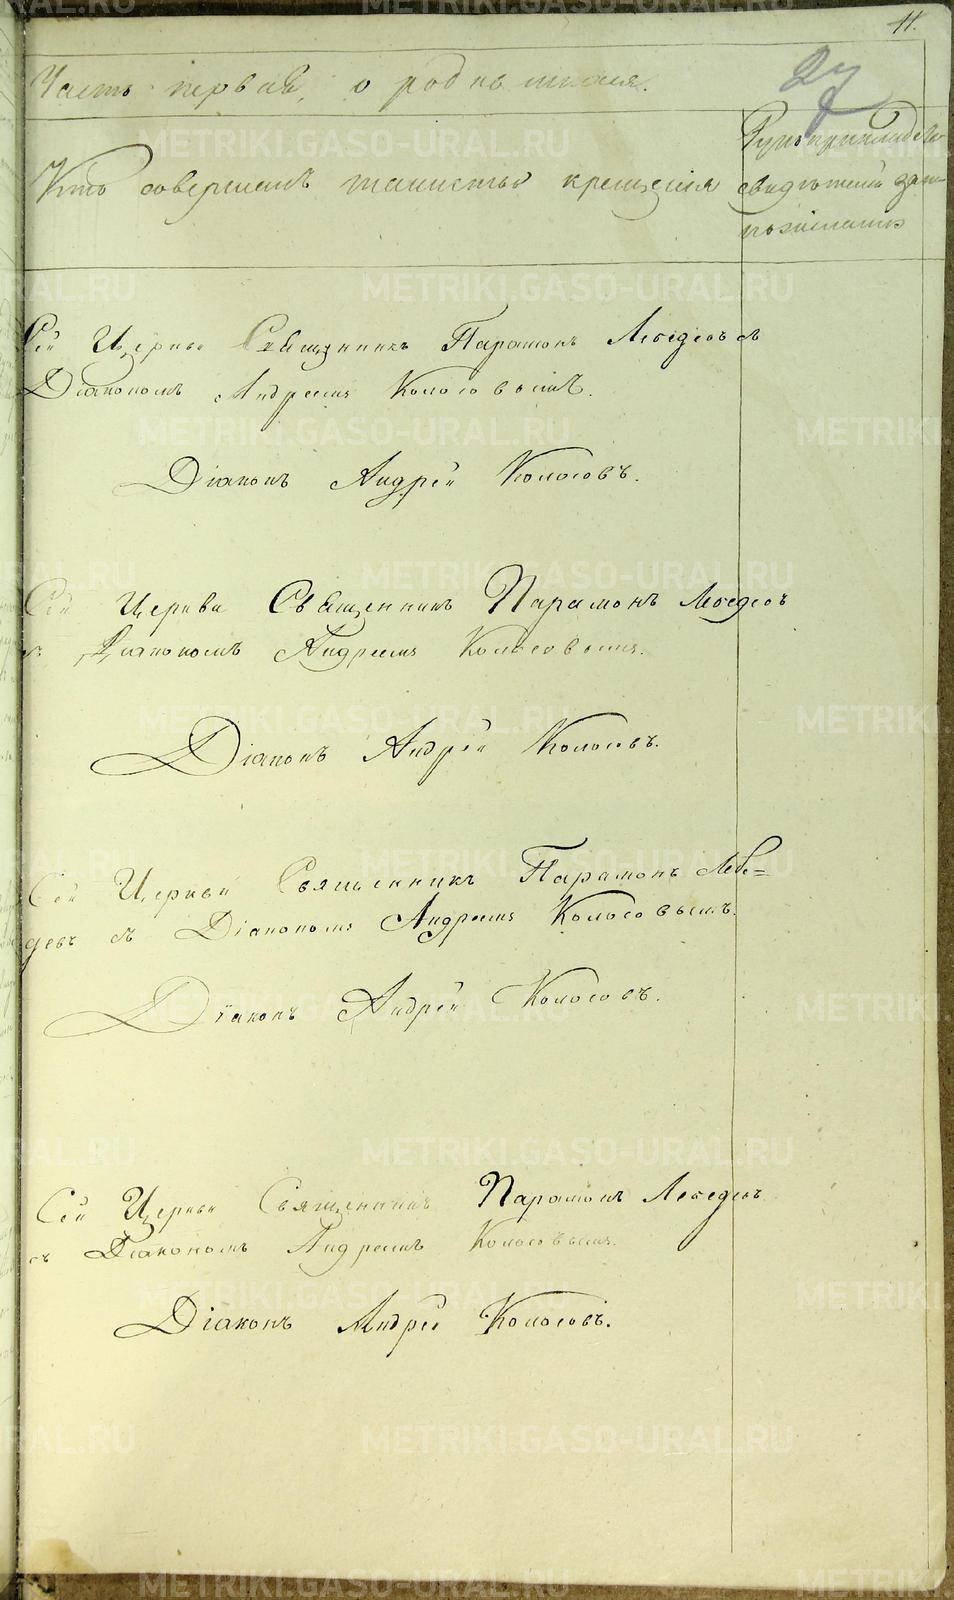 11.
27
Часть первая, о родившихся.
Кто совершалъ таинство крещенія
Рукоприкладство
свидѣтелей запи-
по желанію
Сей Церкви Священникъ Парамонъ Лебедевъ съ
Діакономъ Андреемъ Колосовымъ.
Діаконъ Андрей Колосовъ.
Сей Церкви Священникъ Парамонъ Лебедевъ
съ Діакономъ Андреемъ Колосовымъ.
Діаконъ Андрей Колосовъ.
Сей Церкви Священникъ Парамонъ Лебе=
девъ съ Діакономъ Андреемъ Колосовымъ.
Діаконъ Андрей Колосовъ.
Сей Церкви Священникъ Парамонъ Лебедевъ
съ Діакономъ Андреемъ Колосовымъ.
Діаконъ Андрей Колосовъ.
METRIKI.GASO-URAL.RU